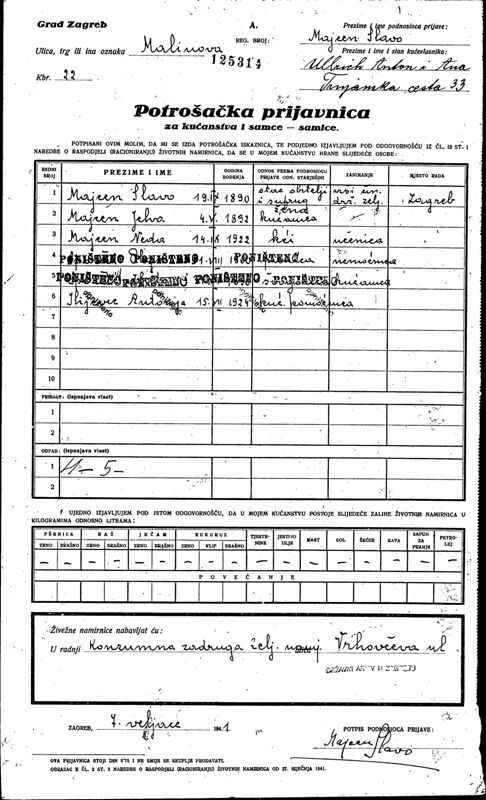 Grad Zagreb
A.
Prezime i ime podnosioca prijave:
Majcen Slavo
Ulica, trg ili ina oznaka Malinova
REG. BROJ:
125314
Prezime i ime i stan kućevlasnika:
Ullrich Anton i Ana
Kbr. 22
Trnjanska cesta 33
Potrošačka prijavnica
za kućanstva i samce — samice.
POTPISANI OVIM MOLIM, DA MI SE IZDA POTROŠAČKA ISKAZNICA, TE PODJEDNO IZJAVLJUJEM POD ODGOVORNOŠĆU IZ ČL. 15 ST. 1
NAREDBE O RASPODJELI (RACIONIRANJU) ŽIVOTNIH NAMIRNICA, DA SE U MOJEM KUĆANSTVU HRANE SLIJEDEĆE OSOBE:
REDNI BROJ PREZIME I IME GODINA ROĐENJA ODNOS PREMA PODNOSIOCU PRIJAVE ODN. STARJEŠINI ZANIMANJE MJESTO RADA
1 Majcen Slavo 1890 i suprug drž. želj. Zagreb
2 Majcen 4. 1892 žena kućanica
3 Majcen Neda 14. 1922 kći učenica
4 PONIŠTENO PONIŠTENO PONIŠTENO nemoćnica
5 PONIŠTENO PONIŠTENO PONIŠTENO PONIŠTENO kućanica
6 15. 1924 kuć. pomoćnica
7
8
9
10
PRIRAST: (ispunjava vlast)
1
2
ODPAD: (ispunjava vlast)
1 4 – 5 –
2
UJEDNO IZJAVLJUJEM POD ISTOM ODGOVORNOŠĆU, DA U MOJEM KUĆANSTVU POSTOJE SLIJEDEĆE ZALIHE ŽIVOTNIH NAMIRNICA U
KILOGRAMIMA ODNOSNO LITRAMA:
PŠENICA RAŽ JEČAM KUKURUZ TJESTENINE JESTIVO ULJE MAST SOL ŠEĆER KAVA SAPUN ZA PRANJE PETROLEJ
ZRNO BRAŠNO ZRNO BRAŠNO ZRNO BRAŠNO ZRNO KLIP BRAŠNO
— — — — — — — — — — — — — — — — —
POVEĆANJE
Živežne namirnice nabavljat ću:
U radnji Konzumna zadruga želj. Vrhovčeva ul
DRŽAVNI ARHIV U ZAGREBU
ZAGREB, 7. veljače 1941
POTPIS PODNOSIOCA PRIJAVE:
Majcen Slavo
OVA PRIJAVNICA STOJI DIN 0'75 I NE SMIJE SE SKUPLJE PRODAVATI.
OBRAZAC K ČL. 2 ST. 2 NAREDBE O RASPODJELI (RACIONIRANJU) ŽIVOTNIH NAMIRNICA OD 27. SIJEČNJA 1941.